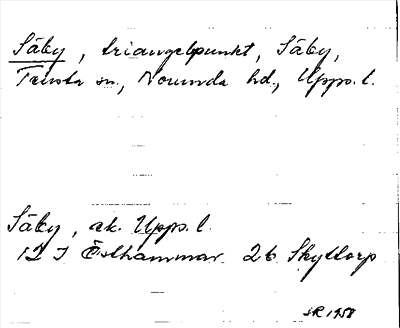 Säby, triangelpunkt, Säby,
Tensta sn, Norunda hd, Upps. l.
Säby, ek. Upps. l.
12 I Östhammar 26 Skyttorp
SR 1958